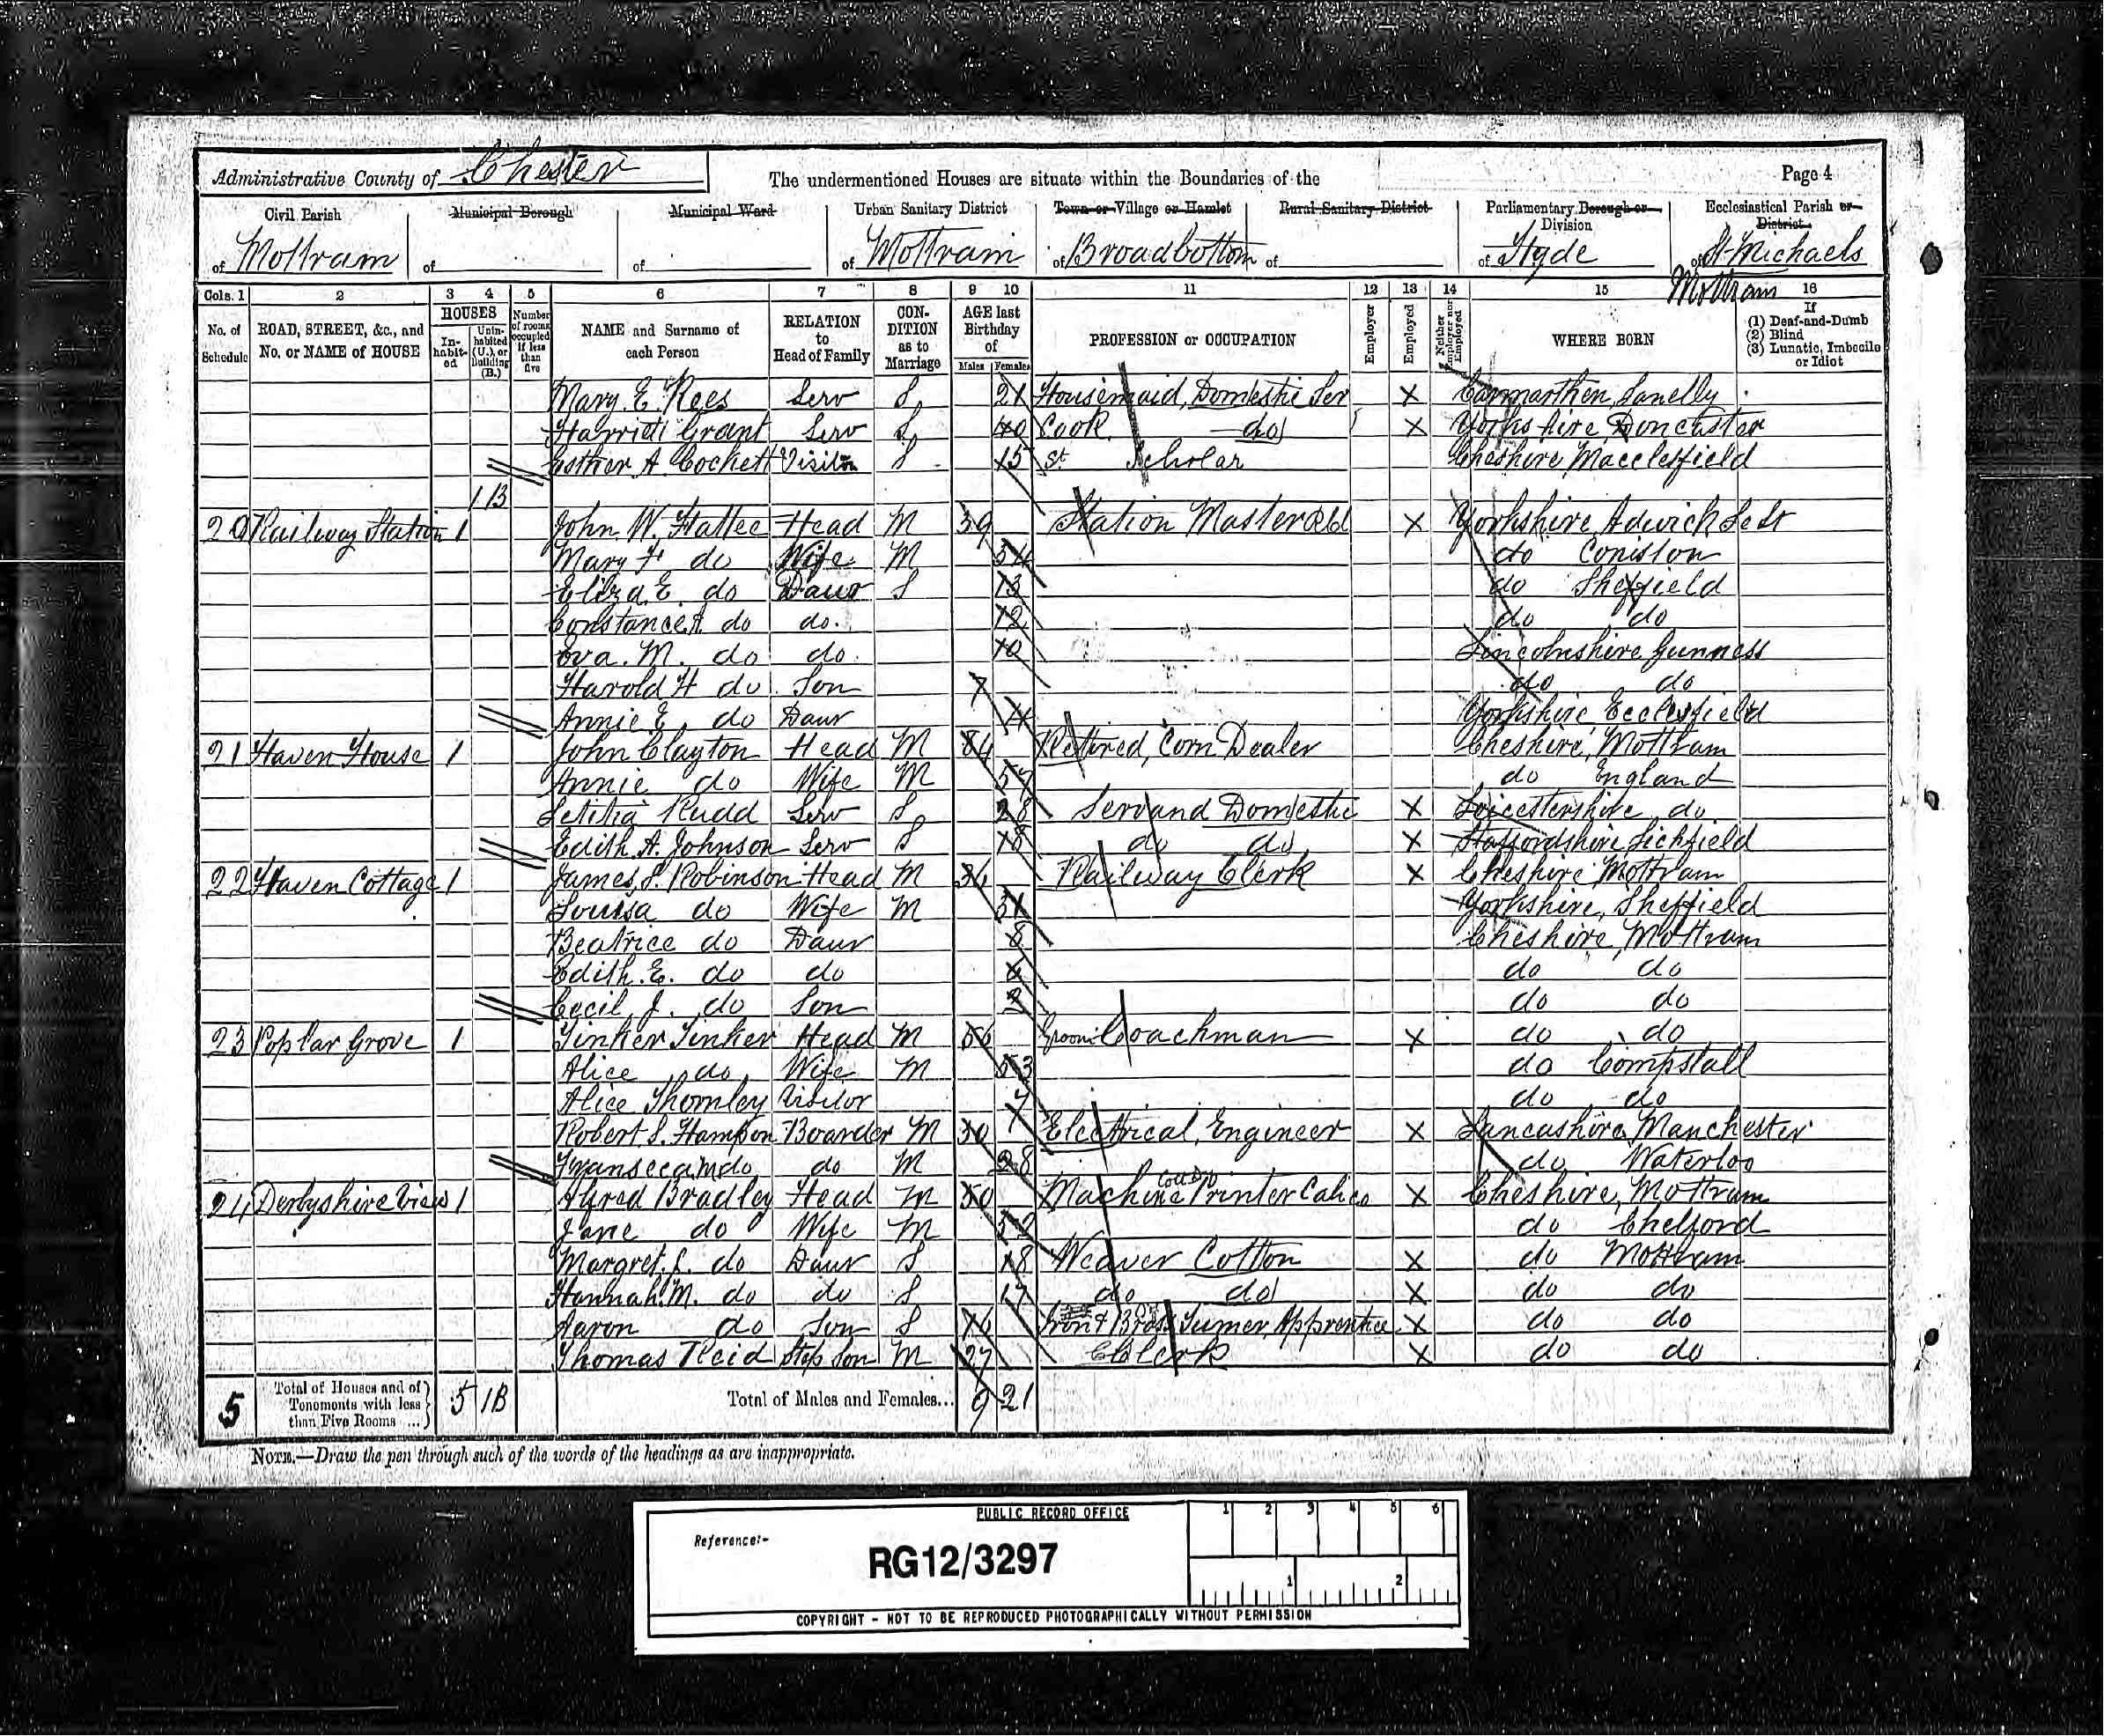 Administrative County of Chester
The undermentioned Houses are situate within the Boundaries of the
Page 4
Civil Parish of Mottram
Municipal Borough of
Municipal Ward of
Urban Sanitary District of Mottram
Town or Village or Hamlet of Broadbottom
Rural Sanitary District of
Parliamentary Borough or Division of Hyde
Ecclesiastical Parish or District of St Michaels Mottram
Cols. 1 2 3 4 5 6 7 8 9 10 11 12 13 14 15 16
No. of Schedule
ROAD, STREET, &c., and No. or NAME of HOUSE
HOUSES
Inhabited
Uninhabited (U.), or Building (B.)
Number of rooms occupied if less than five
NAME and Surname of each Person
RELATION to Head of Family
CONDITION as to Marriage
AGE last Birthday of
Males Females
PROFESSION or OCCUPATION
Employer
Employed
Neither Employer nor Employed
WHERE BORN
If (1) Deaf-and-Dumb (2) Blind (3) Lunatic, Imbecile or Idiot
Mary. E. Rees Serv S 21 Housemaid, Domestic Ser X Carmarthen, Lanelly
Harriett Grant Serv S 40 Cook do X Yorkshire, Doncaster
Esther A Cockett Visitor S 15 Scholar Cheshire Macclesfield
1 B
20 Railway Station 1 John W. Hattee Head M 39 Station Master X Yorkshire, Adwick
Mary F do Wife M 34 do Coniston
Eliza E. do Daur S 13 do Sheffield
Constance A do do. 12 do do
Eva. M. do do. 10 Lincolnshire Gunness
Harold H do Son 7 do do
Annie E. do Daur 4 Yorkshire Ecclesfield
21 Haven House 1 John Clayton Head M 84 Retired, Corn Dealer Cheshire, Mottram
Annie do Wife M 57 do England
Letitia Rudd Serv S 28 Servand Domestic X Leicestershire do
Edith A. Johnson Serv S 18 do do X Staffordshire, Lichfield
22 Haven Cottage 1 James S. Robinson Head M 36 Railway Clerk X Cheshire Mottram
Louisa do Wife M 31 Yorkshire, Sheffield
Beatrice do Daur 8 Cheshire, Mottram
Edith. E. do do 6 do do
Cecil J. do Son 2 do do
23 Poplar Grove 1 Tinker Tinker Head M 56 Groom Coachman X do do
Alice do Wife M 53 do Compstall
Alice Thornley Visitor 7 do do
Robert S. Hampson Boarder M 30 Electrical, Engineer X Lancashire Manchester
do do M 28 do Waterloo
24 Derbyshire View 1 Alfred Bradley Head M 50 Machine Printer Calico X Cheshire, Mottram
Jane do Wife M 52 do Chelford
Margret. L. do Daur S 18 Weaver Cotton X do Mottram
Hannah. M. do do S 17 do do X do do
Aaron do Son S 16 Iron & Brass Turner, Apprentice X do do
Thomas Reid Step Son M 27 Clerk X do do
5
Total of Houses and of Tenements with less than Five Rooms ...
5 1B
Total of Males and Females...
9 21
NOTE.—Draw the pen through such of the words of the headings as are inappropriate.
PUBLIC RECORD OFFICE
1 2 3 4 5 6
Reference:-
RG12/3297
1 2
COPYRIGHT - NOT TO BE REPRODUCED PHOTOGRAPHICALLY WITHOUT PERMISSION